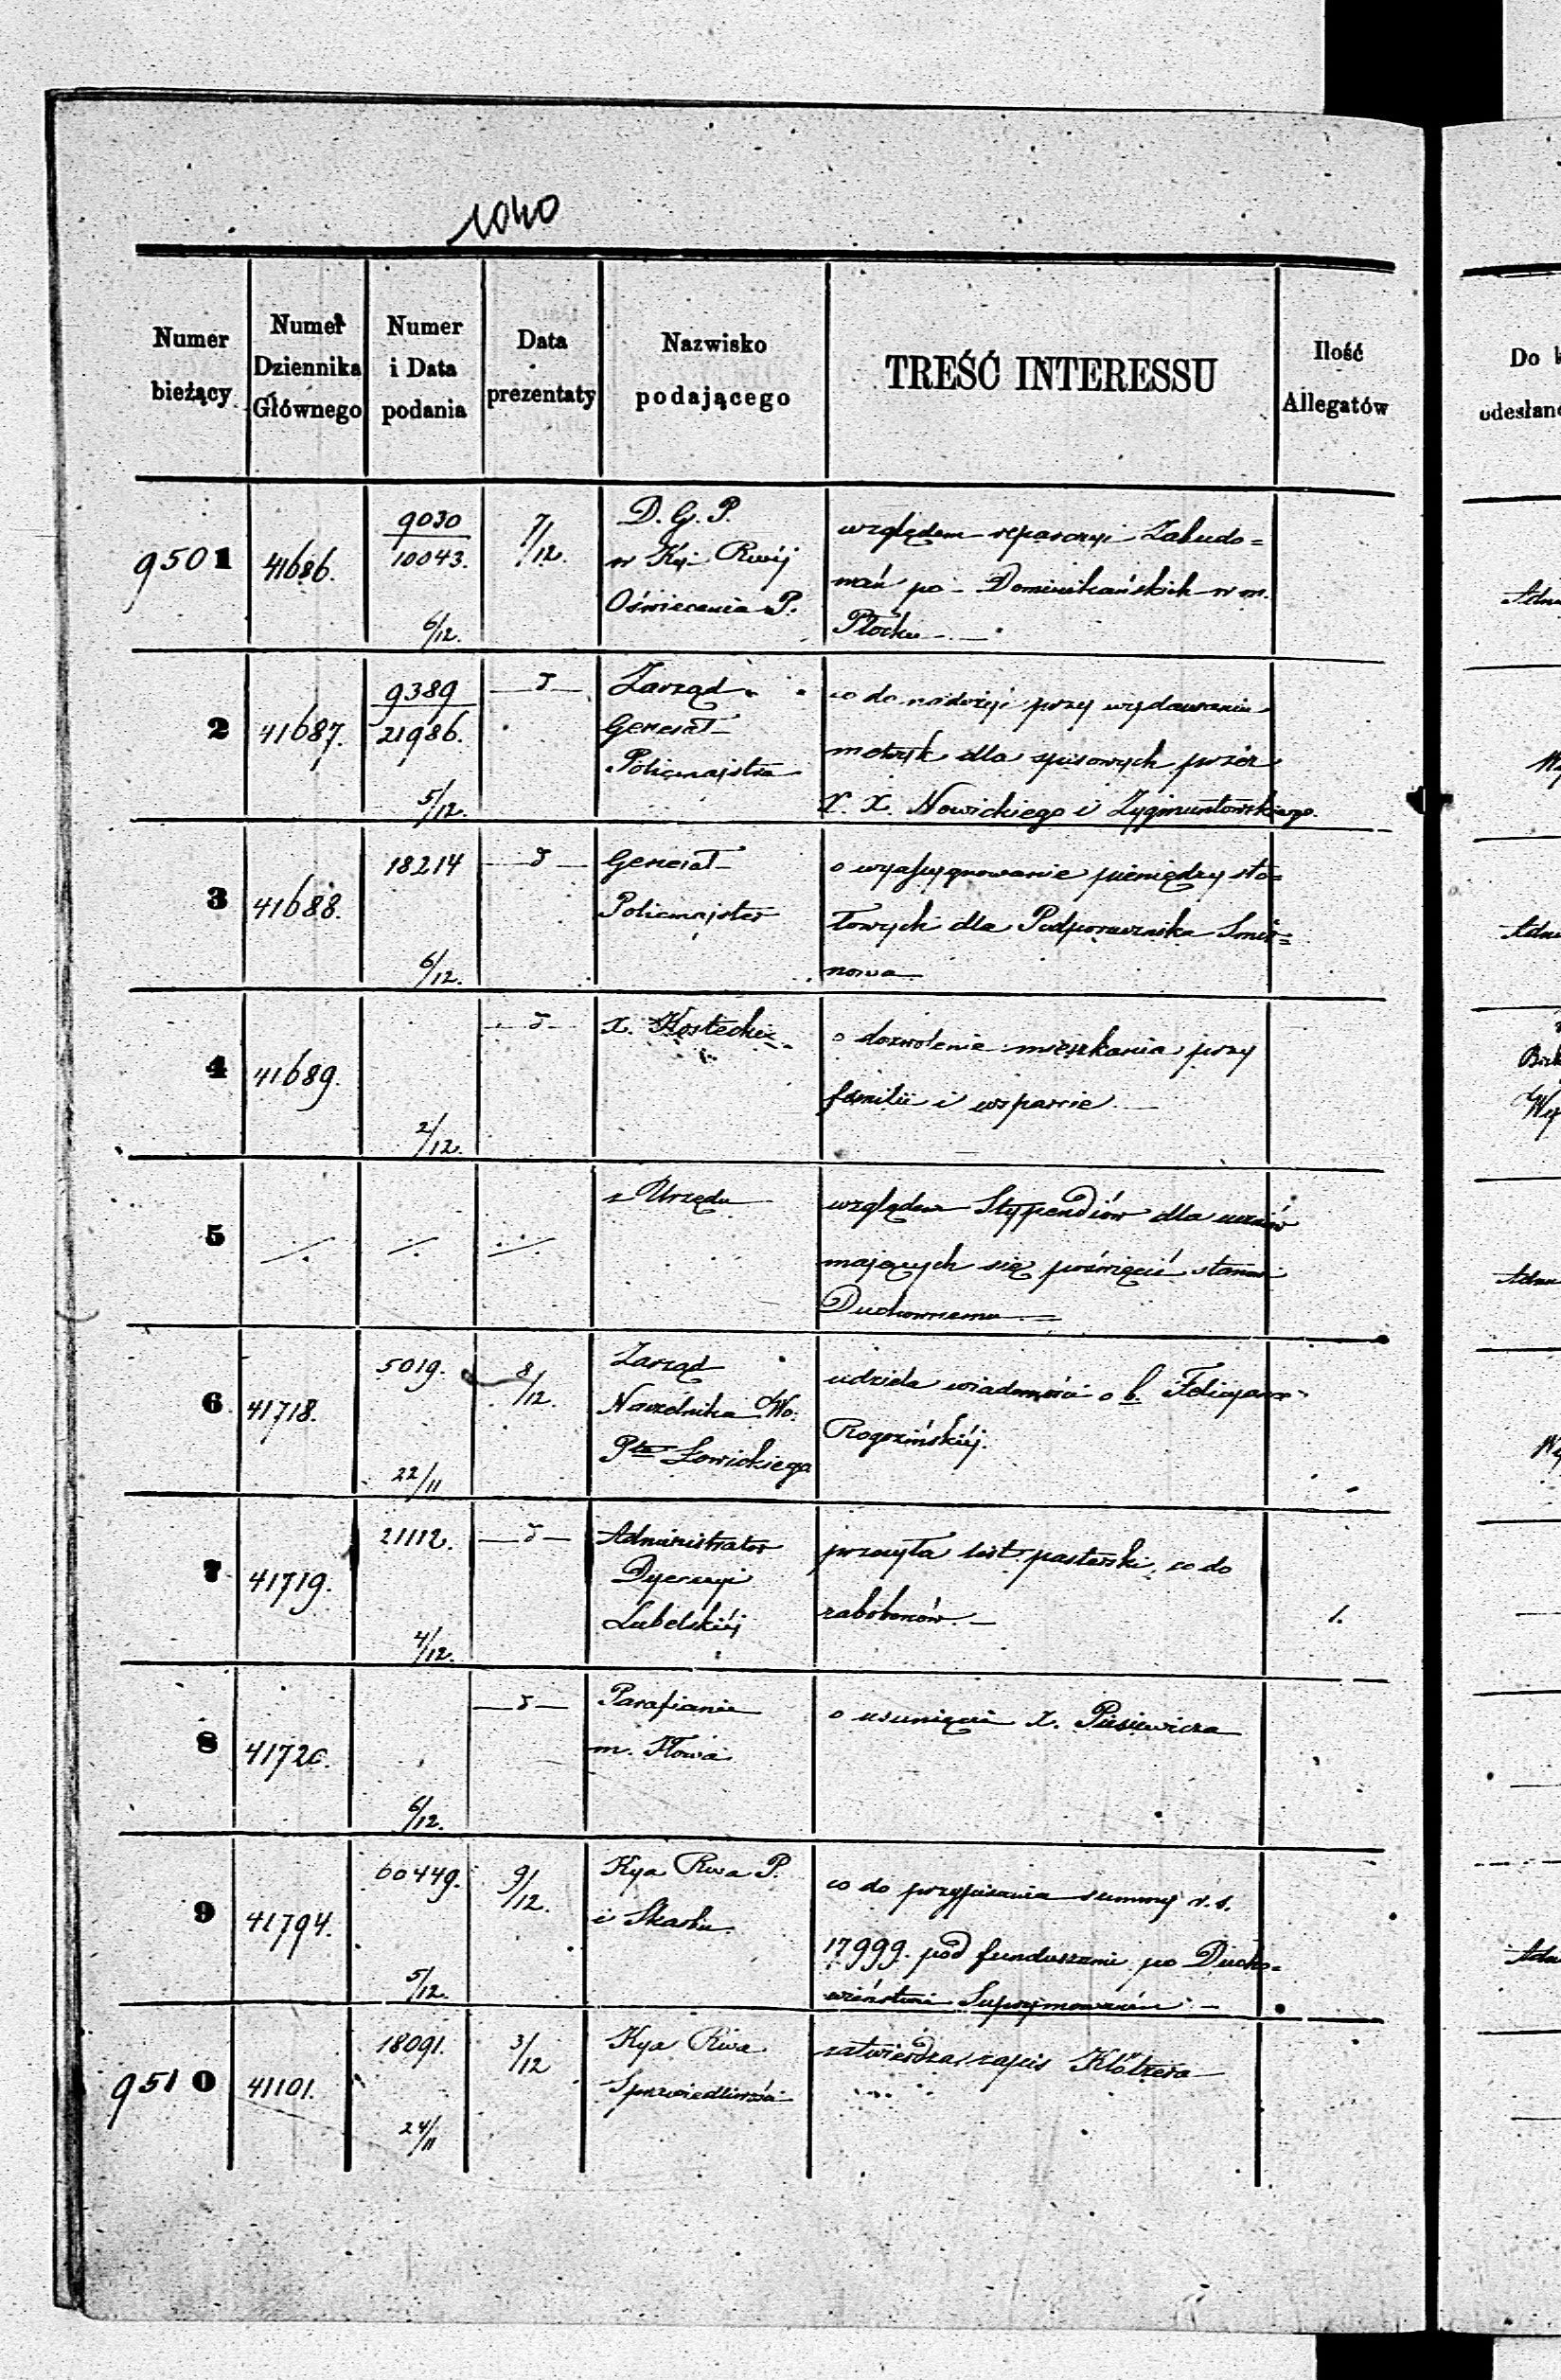 1040
Numer bieżący
Numer Dziennika Głównego
Numer i Data podania
Data prezentaty
Nazwisko podającego
TREŚĆ INTERESSU
Ilość Allegatów
9501
41686.
9030
10043.
6/12.
7/12.
D. G. P.
w Kyi Rwéj
Oświecenia P.
względem reparacyi Zabudo=
wań po Dominikańskich w m.
Płocku
2
41687.
9389
21986.
5/12.
Zarząd
Generał
Policmajstra
co do nadużyć przy wydawaniu
metryk dla spisowych przez
X. X. Nowickiego i Zygmuntowskiego.
3
41688.
18214
6/12.
Generał
Policmajster
o wyasygnowanie pieniędzy sto=
łowych dla Podporucznika Smir=
nowa
4
41689.
2/12.
X. Kostecki
o dozwolenie mieszkania przy
familii i wsparcie.
5
z Urzędu
względem Stypendiów dla uczniów
mających się poświęcić stanowi
Duchownemu
6
41718.
5019.
22/11
8/12.
Zarząd
Naczelnika Wo.
Ptu Łowickiego
udziela wiadomości o b. Felicyance
Rogozińskiéj.
7
41719.
21112.
4/12.
Administrator
Dyecezyi
Lubelskiéj
przesyła list pasterski, co do
zabobonów.
1.
8
41720.
6/12.
Parafianie
m. Iłowa
o usunięcie X. Piesiewicza
9
41794.
60449.
5/12.
9/12.
Kya Rwa P.
i Skarbu
co do przypisania summy r. s.
17999. pod funduszami po Ducho=
wieństwie Supprymowaném
9510
41101.
18091.
24/11
3/12
Kya Rwa
Sprawiedliwości
zatwierdza zapis Klötzera
Do k
odesłano